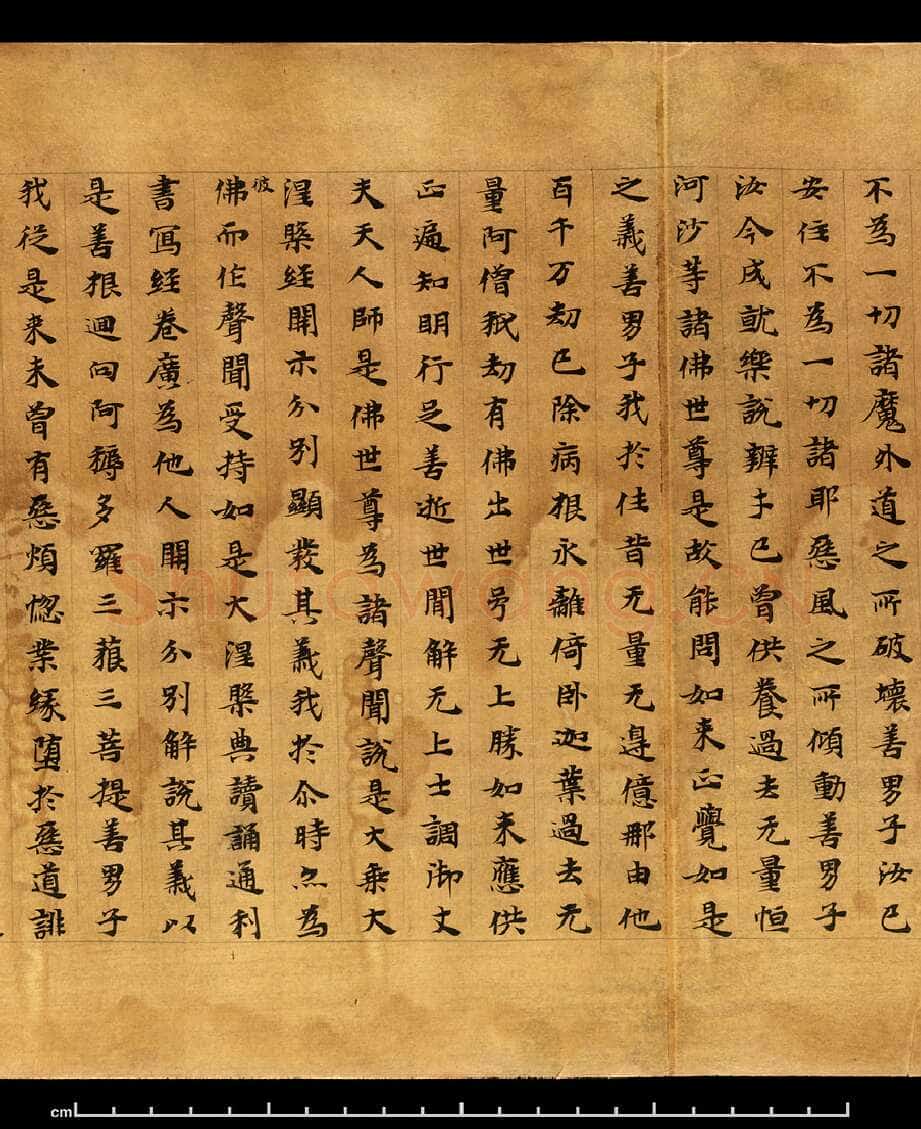 不為一切諸魔外道之所破壞善男子汝已
安住不為一切諸耶惡風之所傾動善男子
汝今成就樂說辯才已曾供養過去无量恒
河沙等諸佛世尊是故能問如來正覺如是
之義善男子我於往昔无量无邊億那由他
百千万劫已除病根永離倚卧迦葉過去无
量阿僧祇劫有佛出世号无上勝如来應供
正遍知明行足善逝世間解无上士調御丈
夫天人師是佛世尊為諸聲聞說是大乘大
涅槃經開示分別顯發其義我於尒時亦為
彼佛而作聲聞受持如是大涅槃典讀誦通利
書寫經卷廣為他人開示分別解說其義以
是善根迴向阿耨多羅三藐三菩提善男子
我從是来未曾有惡煩惚業緣堕於惡道誹
cm